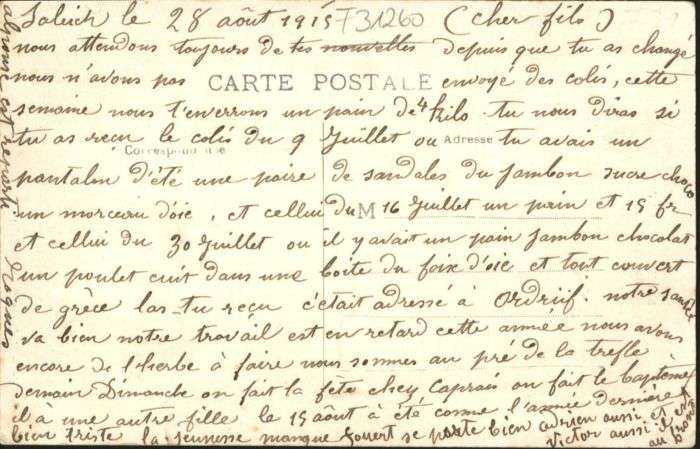 Saleich le 28 août 1915 F31260 (cher fils)
nous attendons toujours de tes nouvelles depuis que tu as changé
nous n'avons pas CARTE POSTALE envoyé des colis, cette
semaine nous t'enverrons un pain de 4 kilo. tu nous diras si
tu as reçu le colis du 9 Guillet ou Adresse tu avais un
Correspondance
pantalon d'été une paire de sandales du Jambon sucre choco
un morceau d'oie, et cellui du M 16 Guillet un pain et 15 fr
et cellui du 30 Guillet ou il y avait un pain Jambon chocolat
un poulet cuit dans une boite du foix d'oie et tout couvert
de grèce las tu reçu c'était adressé à Ordruf. notre santé
va bien notre travail est en retard cette année nous avons
encore de l'herbe à faire nous sommes au pré de la trefle
demain Dimanche on fait la fête chez Caprais on fait le baptême
il à une autre fille le 15 août à été comme l'année dernière
bien triste la jeunesse manque Gouert se porte bien adrien aussi et
victor aussi il est
au